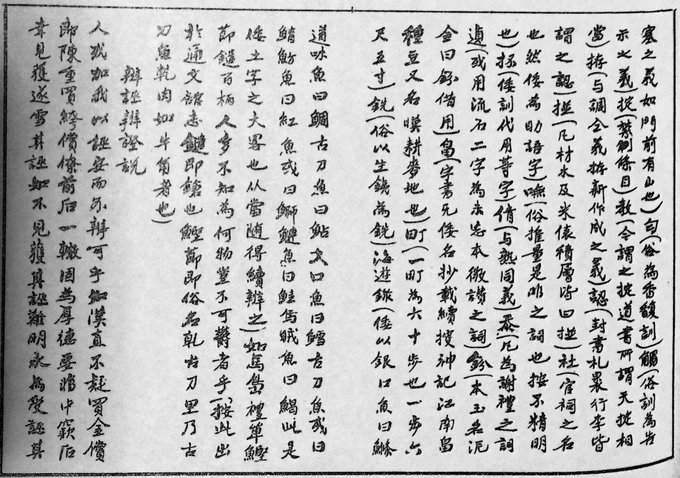 寒之義如門前有山也)匂(俗為香馥訓)觸(俗訓為告
示之義)掟(禁制條目)教(今謂之掟道書所謂天掟相
當)拵(与調仝義拵新作成之義)認(封書札裹行李皆
謂之認)挃(凡材木及米俵積層皆曰挃)社(官祠之名
也然倭為助語字)噷(俗推量是非之詞也按不精明
也)扨(倭訓代用等字)侑(与熟同義)忝(凡為謝礼之詞
適)或用流石二字為未忠本微讃之詞)鈖(本玉名泥
金曰鈖借用)畠(字書无倭名抄載續搜神記江南畠
種豆又名暵耕麥地也)町(一町為六十步也一步六
尺五寸)銑(俗以生鐵為銑)海遊錄(倭以銀口魚曰鰷
道味魚曰鯛古刀魚曰鮎大口魚曰鱈古刀魚或曰
鯖魴魚曰紅魚或曰鰤鰱魚曰鮭烏賊魚曰鯣此是
倭土字之大畧也从當随得續辨之)如馬島禮單鰹
節鎚百柄人多不知為何物豈不可欝者乎(按此出
於通文舘志鎚即鎗也鰹節即俗名乾古刀里乃古
刀魚乾肉如牛角者也)
辨誣辨證說
人或加我以誣妄而不辨可乎如漢直不疑買金償
郎陳重買綺償僚前后一轍固為厚德要將中竅后
幸見獲遂雪其誣如不見獲其誣難明永為受誣其